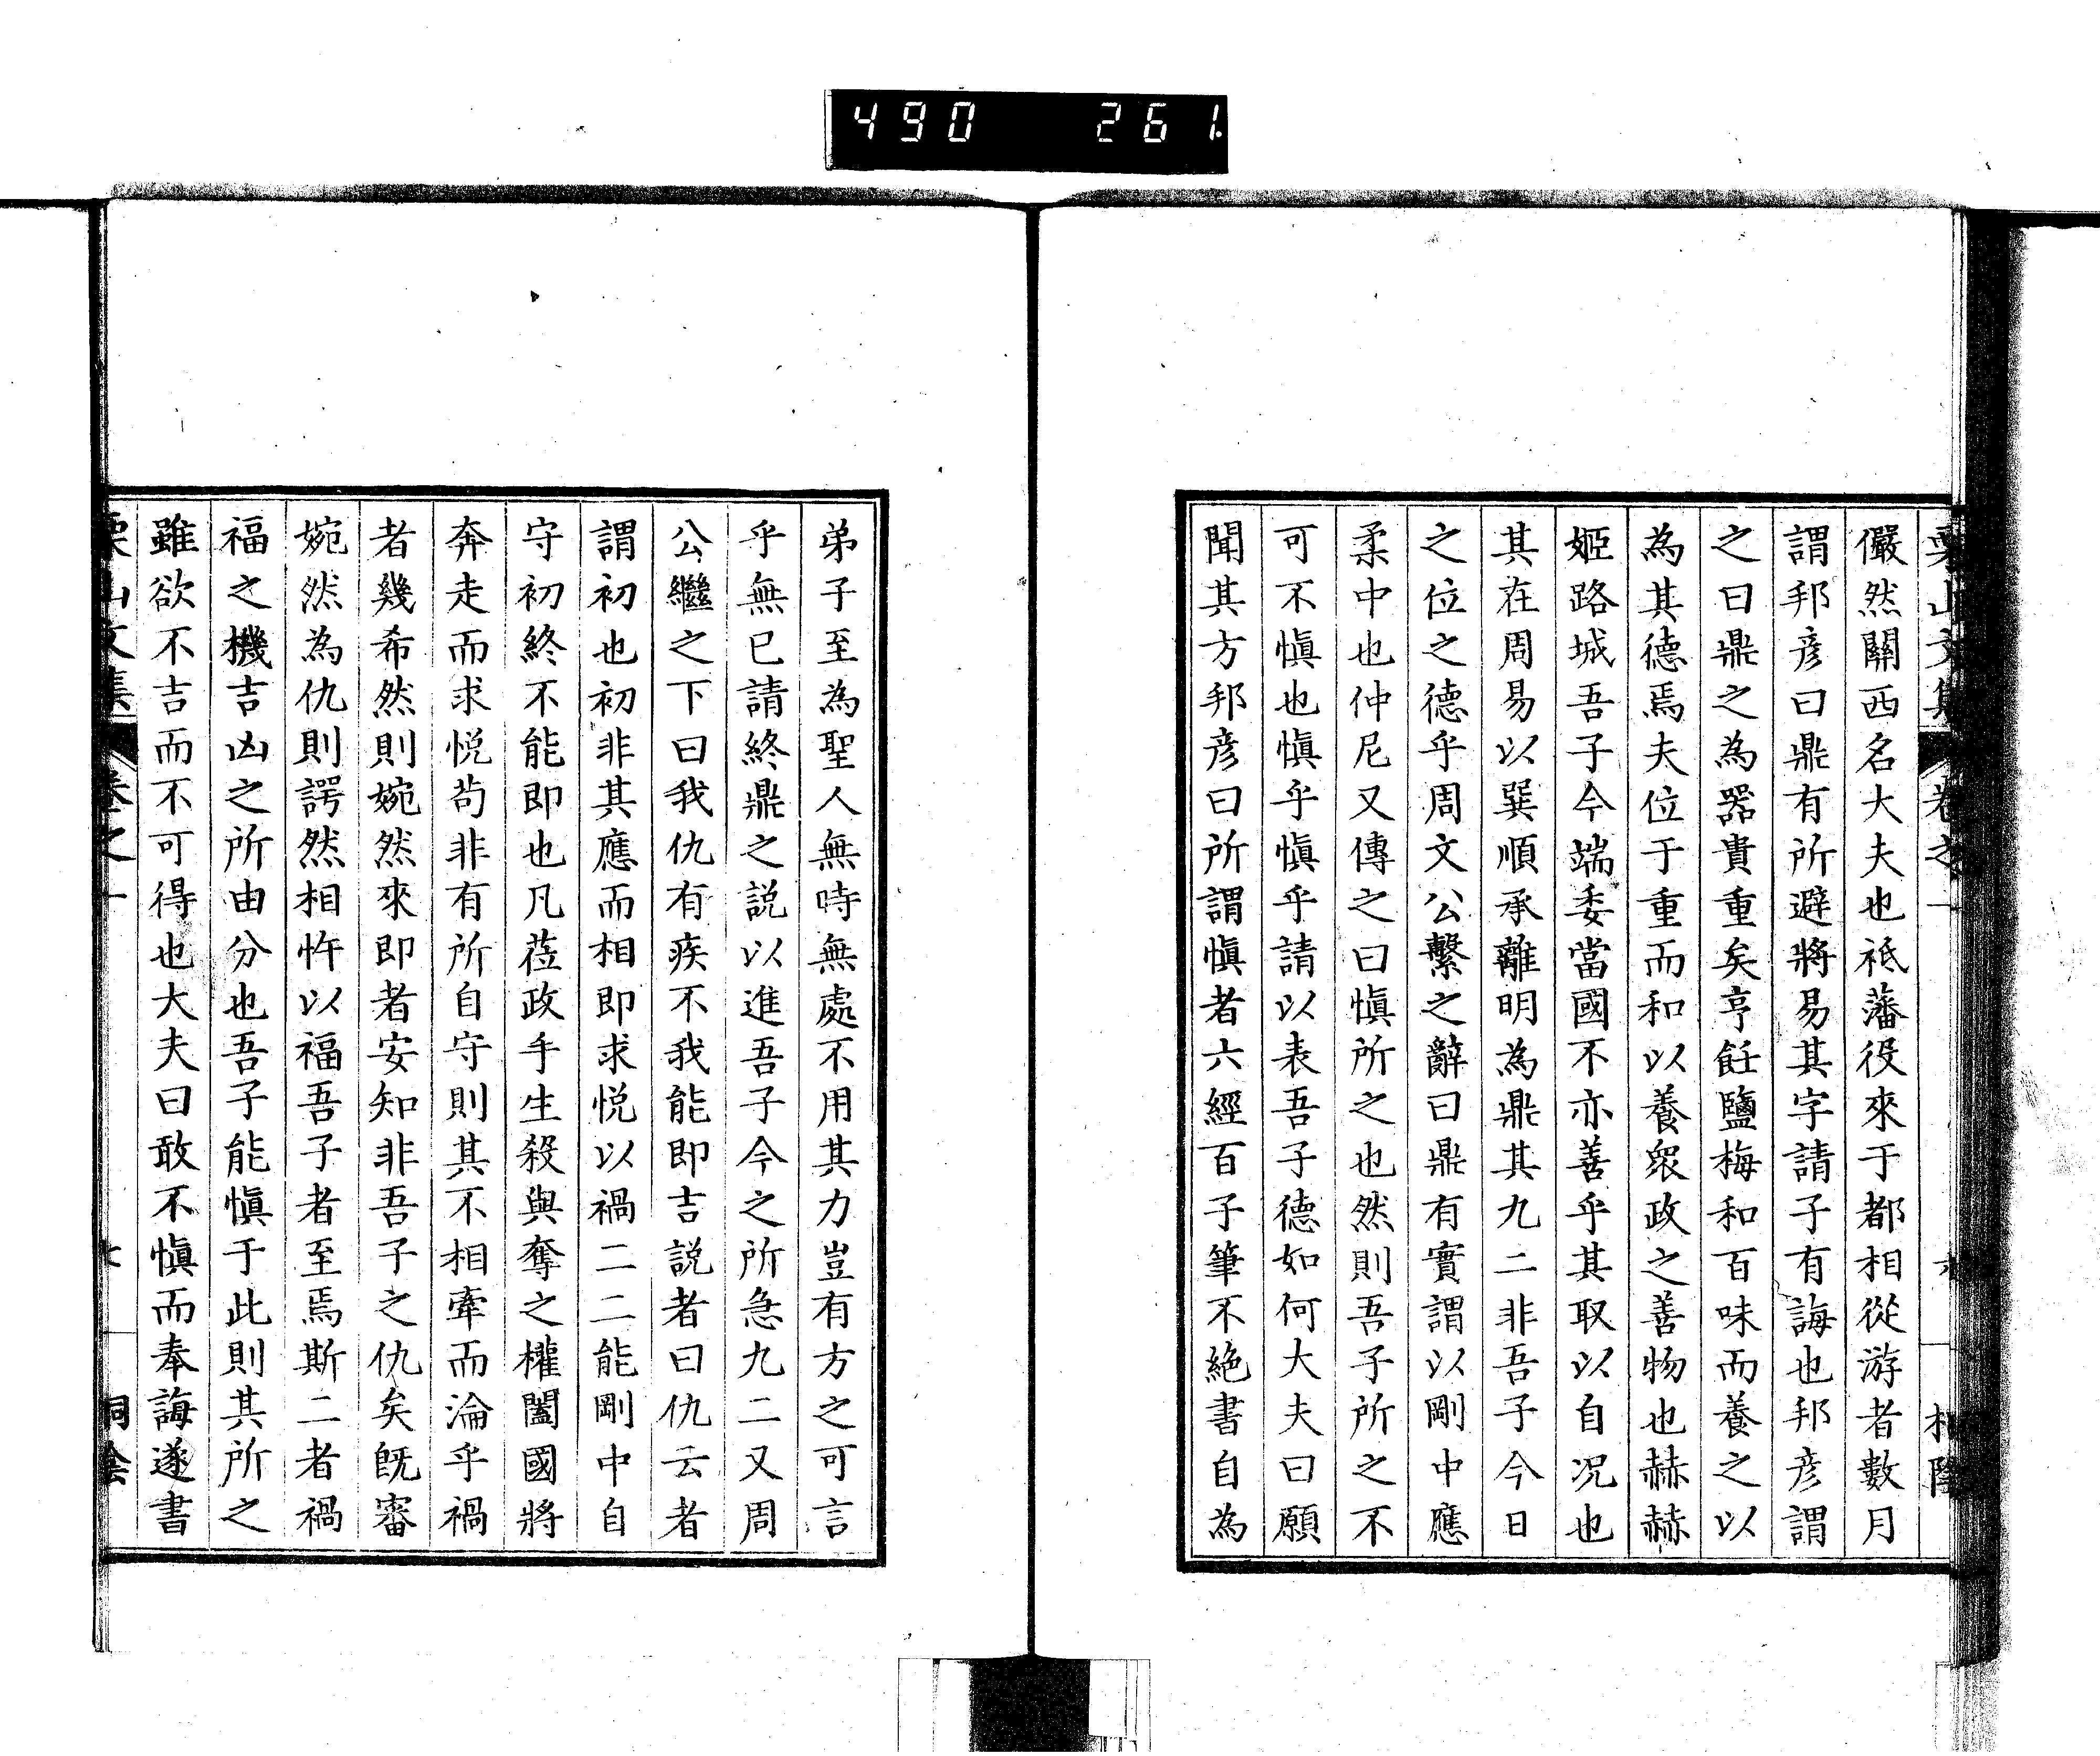 490 261.
栗山文集 卷之一
儼然關西名大夫也祗藩役來于都相從游者數月
謂邦彦曰鼎有所避將易其字請子有誨也邦彦謂
之曰鼎之為器貴重矣亨飪鹽梅和百味而養之以
為其德焉夫位于重而和以養衆政之善物也赫赫
姬路城吾子今端委當國不亦善乎其取以自况也
其在周易以巽順承離明為鼎其九二非吾子今日
之位之德乎周文公繫之辭曰鼎有實謂以剛中應
柔中也仲尼又傳之曰慎所之也然則吾子所之不
可不慎也慎乎慎乎請以表吾子德如何大夫曰願
聞其方邦彦曰所謂慎者六經百子筆不絶書自為
弟子至為聖人無時無處不用其力豈有方之可言
乎無已請終鼎之説以進吾子今之所急九二又周
公繼之下曰我仇有疾不我能即吉説者曰仇云者
謂初也初非其應而相即求悦以禍二二能剛中自
守初終不能即也凡莅政手生殺與奪之權闔國將
奔走而求悦苟非有所自守則其不相牽而淪乎禍
者幾希然則婉然來即者安知非吾子之仇矣既審
婉然為仇則諤然相忤以福吾子者至焉斯二者禍
福之機吉凶之所由分也吾子能慎于此則其所之
雖欲不吉而不可得也大夫曰敢不慎而奉誨遂書
栗山文集 卷之一